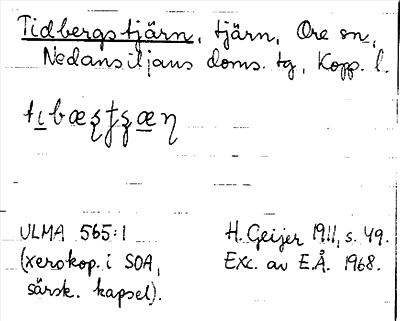 Tidbergstjärn, tjärn, Ore sn,
Nedansiljans doms. tg, Kopp. l.
ULMA 565:1
(xerokop. i SOA,
särsk. kapsel).
H. Geijer 1911, s. 49.
Exc. av E.Å. 1968.